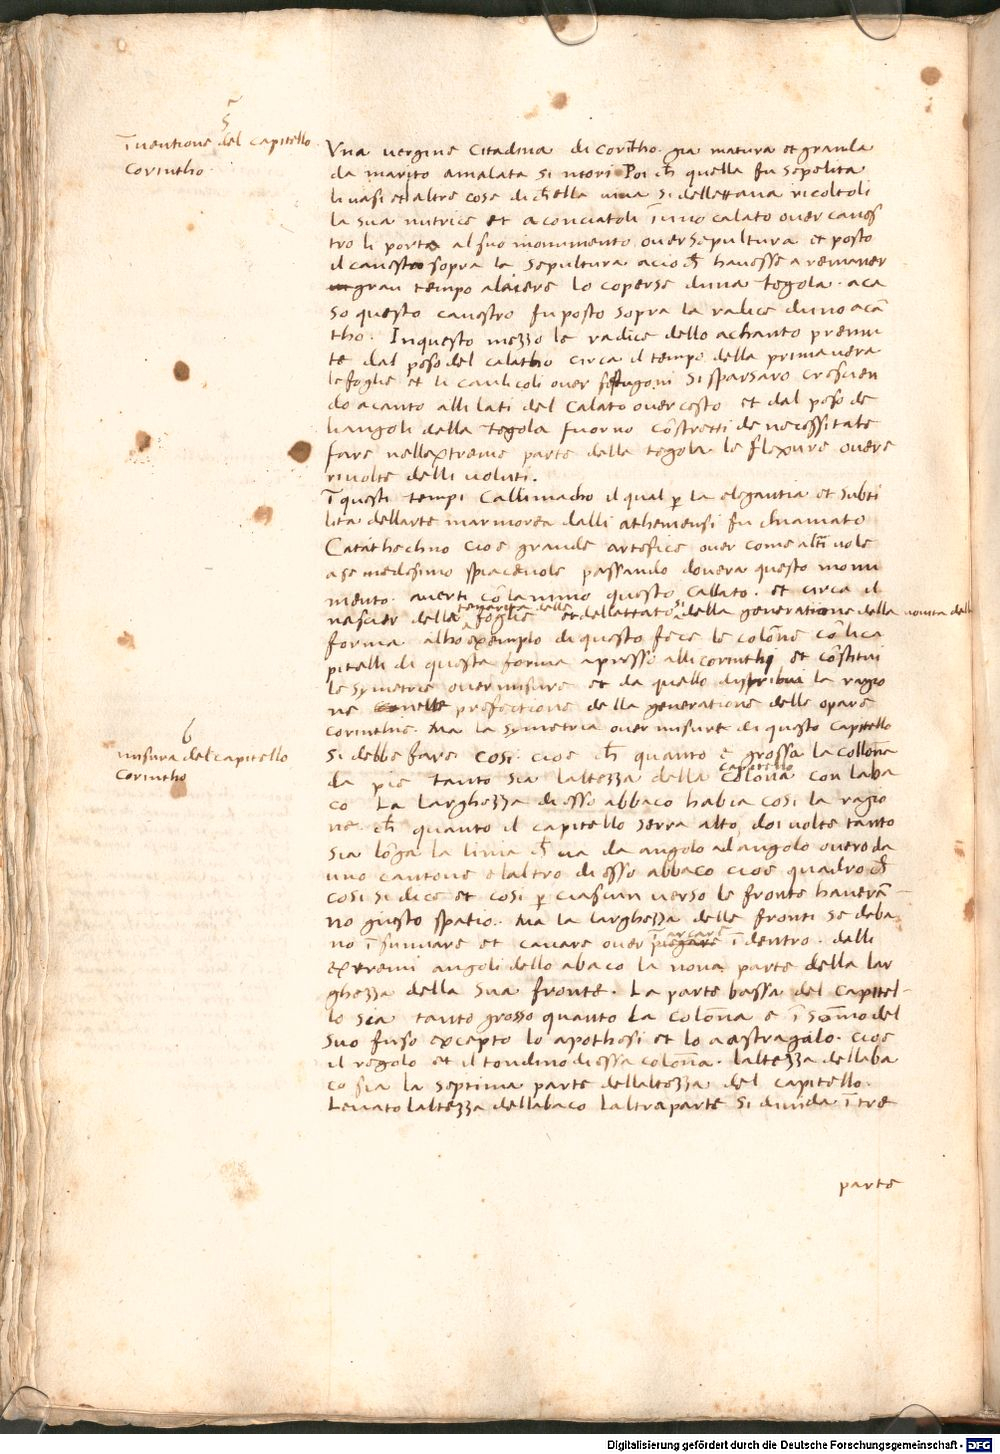 5
Īuentione del capitello
Corintho.
Vna uergine Citadina di Corītho. gia matura et granda
da marito amalata si morì. Poi ch̄ quella fu sepelita
li uasi et altre cose di ch̄ ella uiua si dellettaua ricoltoli
la sua nutrice et aconciatoli ī uno calato ouer canes
tro li porto al suo monumento ouer sepultura et posto
il canestro sopra la sepultura acio ch̄ hauesse a remaner
gran tempo alaiere lo coperse duna tegola. aca
so questo canestro fu posto sopra la radice duno acā
tho. Inquesto mezzo le radice dello achanto premu
te dal peso del calatho circa il tempo della primauera
le foglie et li caulicoli ouer si sparsaro crescien
do acanto alli lati del calato ouer cesto et dal peso de
liangoli della tegola fuorno cōstretti de necessitate
fare nellextreme parte della tegola le flexure ouere
riuolte delli uoluti.
Ī questi tempi Callimacho il qual p̄ la elegantia et subti
lita dellarte marmorea dalli atheniensi fu chiamato
Catathechno cioe grande artefice ouer come altri uole
a se medesimo spiaceuole passando douera questo monu
mento. auerti cō lanimo questo callato. et circa il
nascier delle tenerita delle foglie et dellettatosi della generatione della nouita della
forma. alho exemplo di questo fece le colōne cō li ca
pitelli di questa forma apresso alli corinthij et cōstitui
le symetrie ouer misure et da quello distribui la ragio
ne perfectione della generatione delle opare
corinthie. Ma la symetria ouer misure di questo capitello
6
misura del capitello
Corintho
si debbe fare cosi. cioe ch̄ quanto è grossa la collona
da pie tanto sia laltezza della capitello colōna con laba
co La larghezza di esso abbaco habia cosi la ragio
ne. ch̄ quanto il capitello serra alto, doi uolte tanto
sia lōga la linia ch̄ ua da angolo ad angolo ouero da
uno cantone elaltro di esso abbaco cioe quadro ch̄
cosi si dice et cosi p̄ ciascun uerso le fronte hauerā
no giusto spatio. Ma la larghezza delle fronti se deba
no ī sinuare et cauare ouer īarcare piegare ī dentro. dalli
extremi angoli dello abaco la nona parte della lar
ghezza della sua fronte. La parte bassa del capitel
lo sia tanto grosso quanto la colōna e ī sōmo del
suo fuso excepto lo apothesi et lo aastragalo. cioe
il regolo et il tondino di essa colōna. laltezza dellaba
co sia la septima parte dellaltezza del capitello.
Leuato laltezza dellabaco laltra parte si diuida ī tre
parte
Digitalisierung gefördert durch die Deutsche Forschungsgemeinschaft - DFG